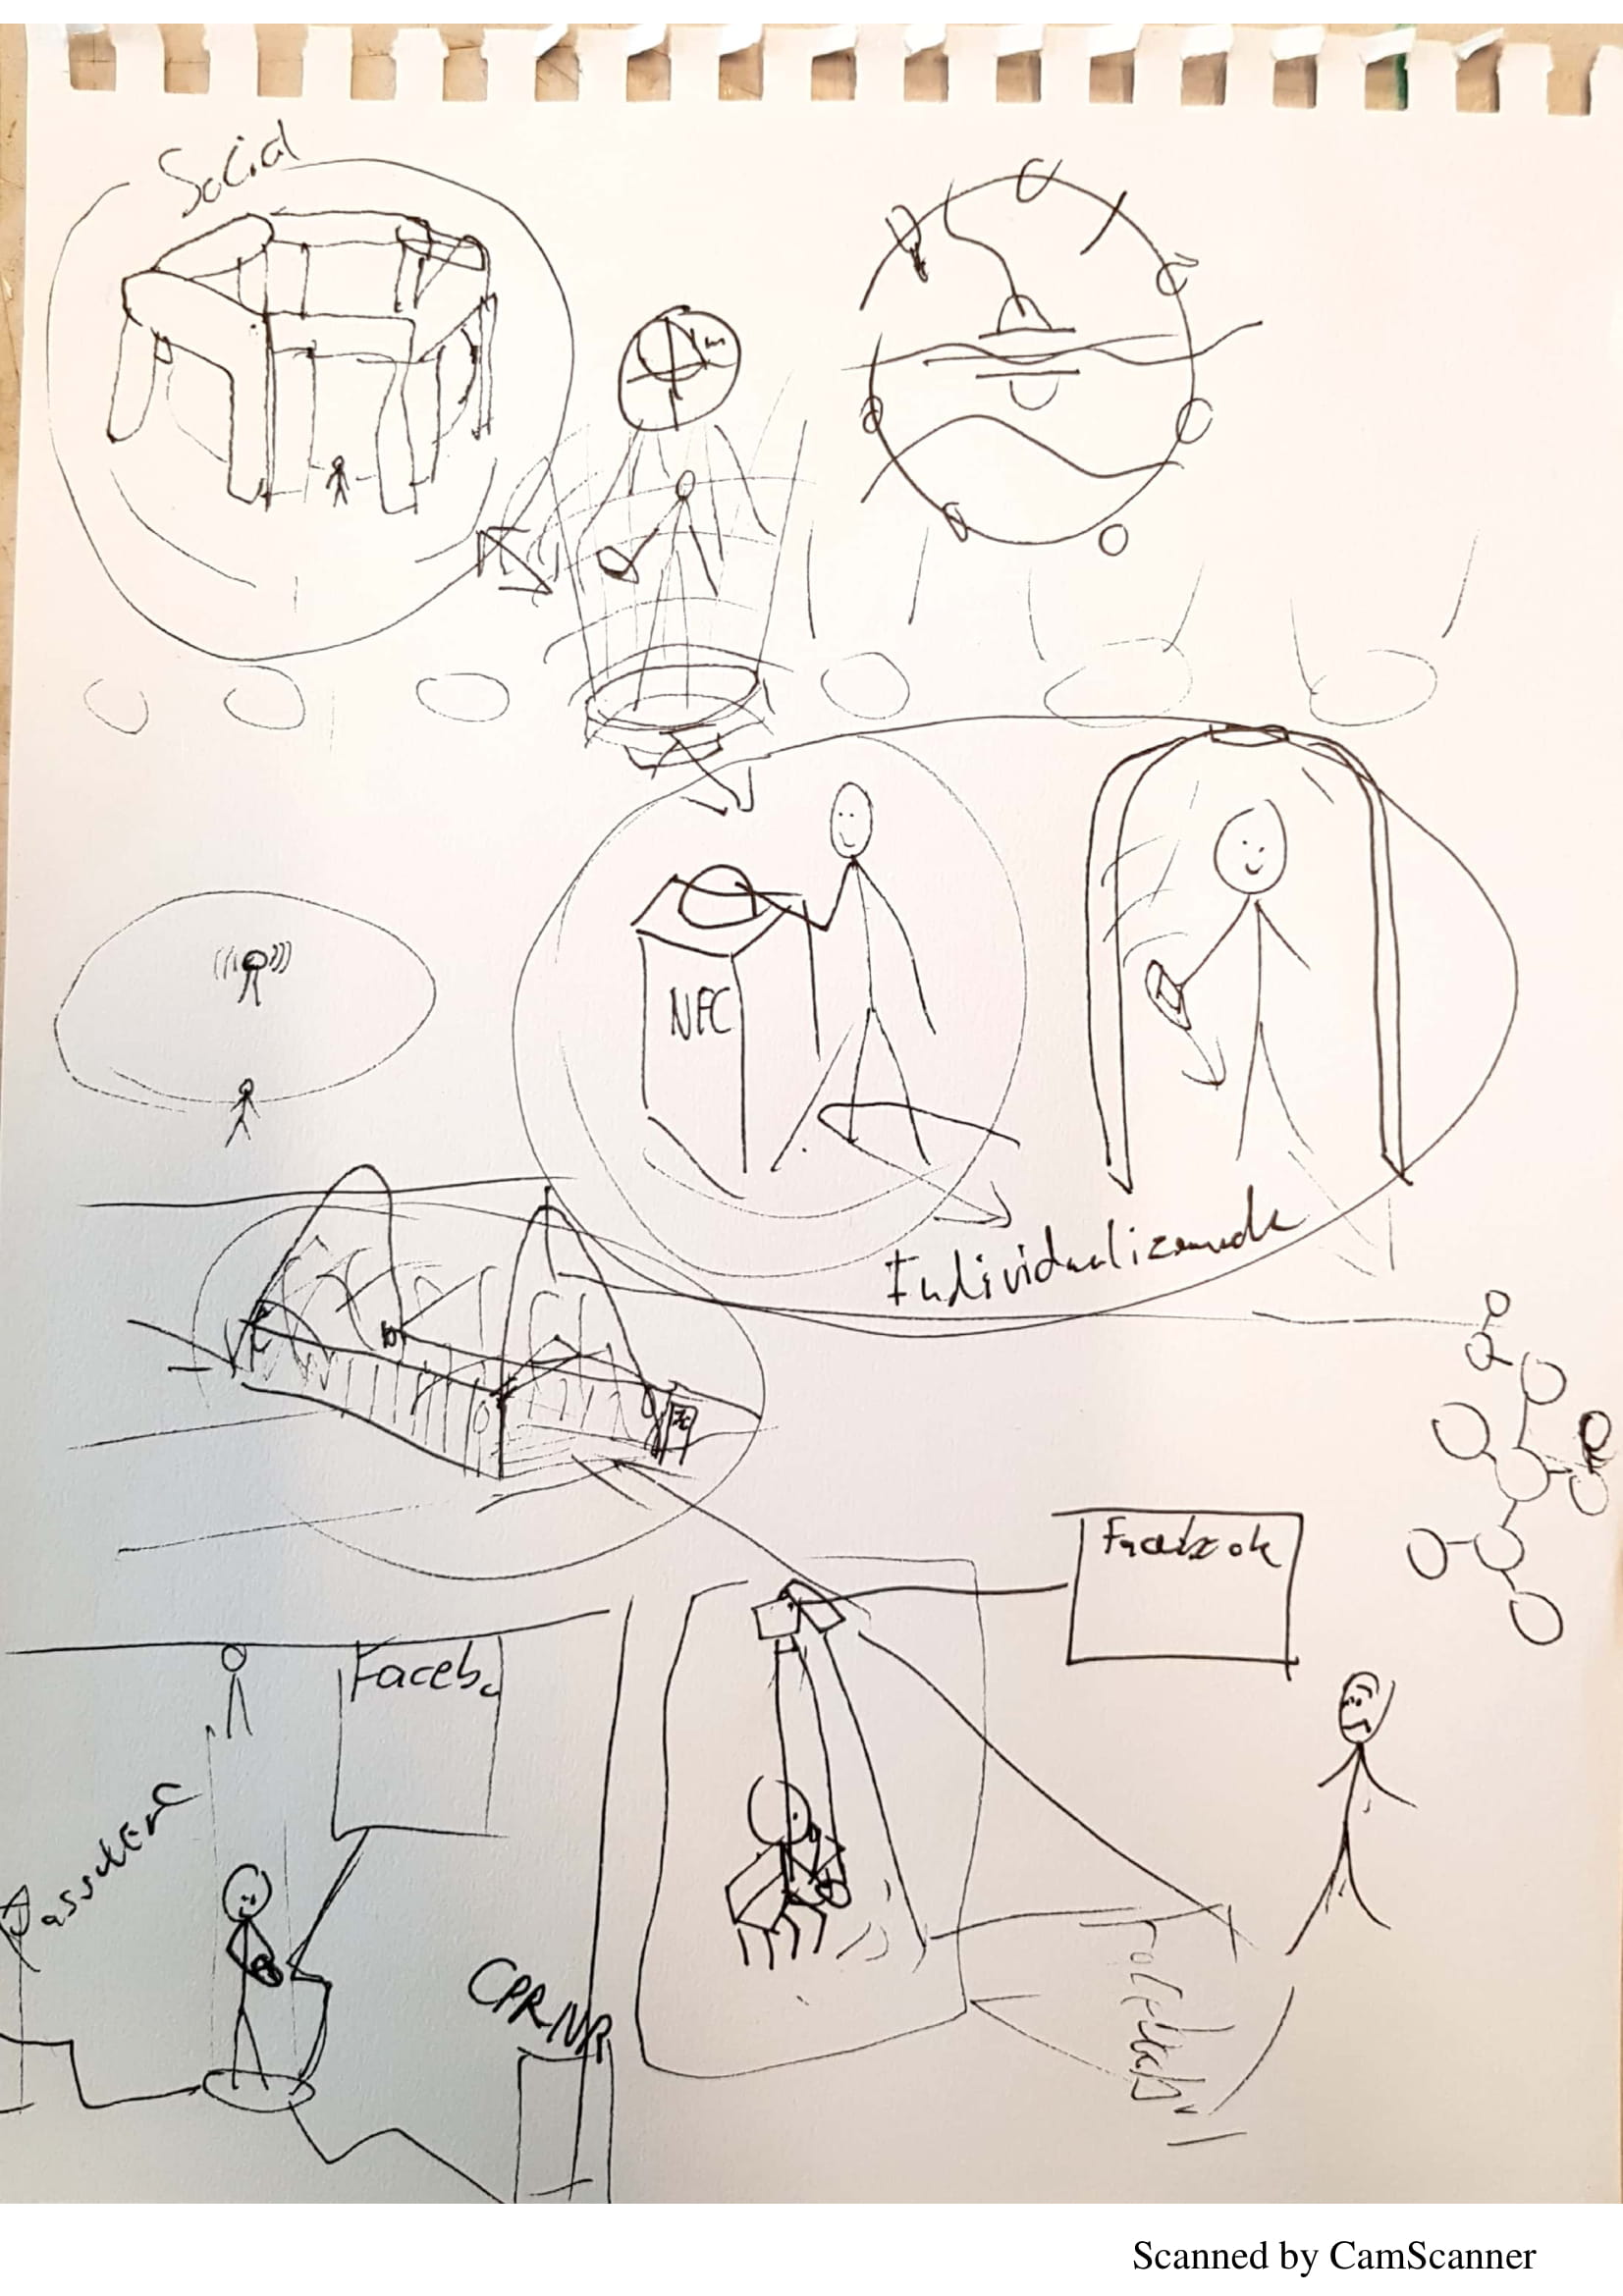 Social
NFC
Individualizemde
Facebook
Faceb
CPR NR
Scanned by CamScanner